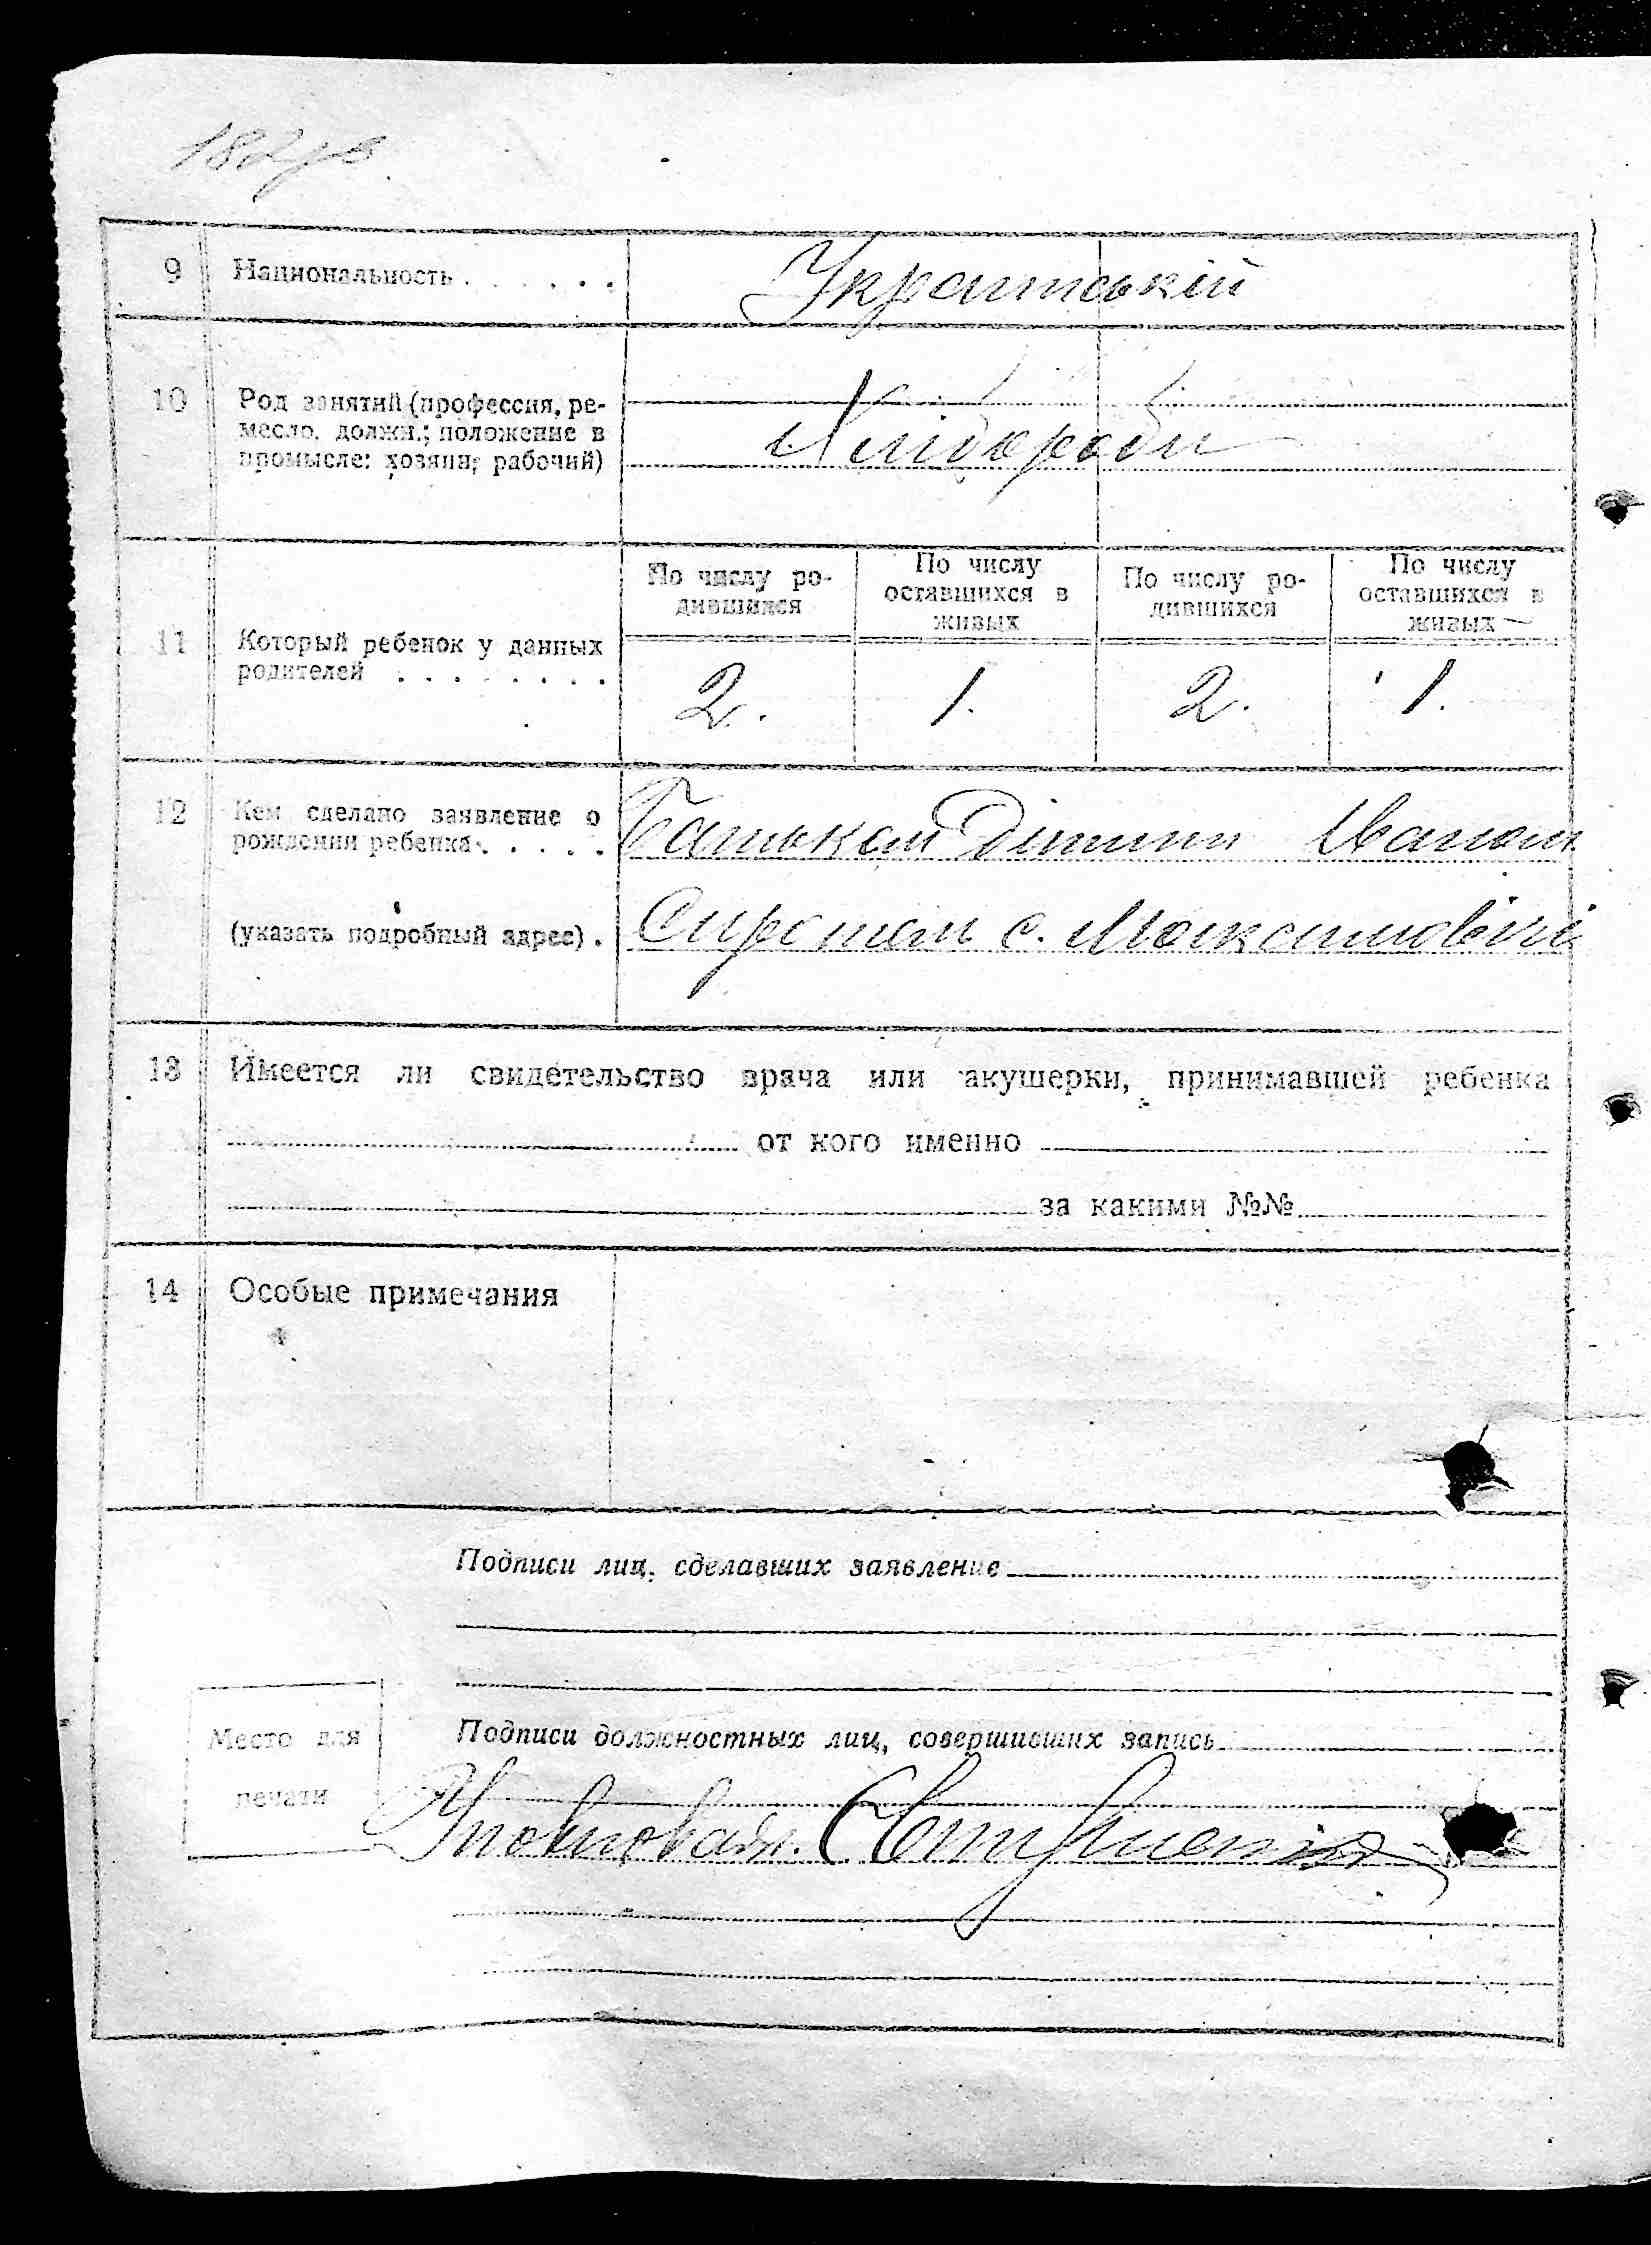 182 зв
9 Национальность . . . . . . Українській
10 Род занятий (профессия, ре-
месло, должн.; положение в
промысле: хозяин; рабочий)
Хлібороби
11 Который ребенок у данных
родителей . . . . . . . .
По числу ро-
дившихся
По числу
оставшихся в
живых
По числу ро-
дившихся
По числу
оставшихся в
живых
2. 1. 2. 1.
12 Кем сделано заявление о
рождении ребенка . . . . .
Батьком Дитини Іваном
(указать подробный адрес) . Сиротом с. Максимовки
13 Имеется ли свидетельство врача или акушерки, принимавшей ребенка
от кого именно
за какими №№
14 Особые примечания
Подписи лиц, сделавших заявление
Место для
печати
Подписи должностных лиц, совершивших запись